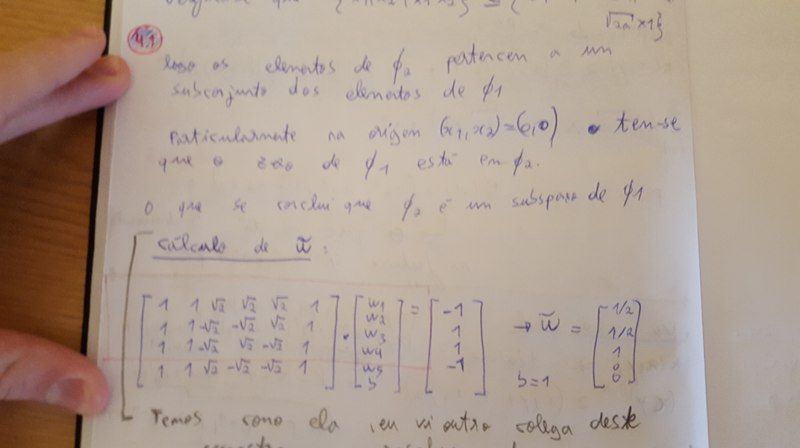 √2a x1}
4.1
logo os elementos de ϕ2 pertencen a un
subconjunto dos elementos de ϕ1
Particularmente na origen (x1, x2)=(0,0) ten-se
que o zero de ϕ1 está en ϕ2.
O que se conclui que ϕ2 é un subspaso de ϕ1
Cálculo de w̃ :
[1 1 √2 √2 √2 1] [w1] = [-1] → w̃ = [1/2]
[1 1 -√2 -√2 √2 1] · [w2] [1] [1/2]
[1 1 -√2 √2 -√2 1] [w3] [1] [1]
[1 1 √2 -√2 -√2 1] [w4] [-1] b=1 [0]
[w5] [0]
[b]
Temos como ela , eu vi outro colega deste